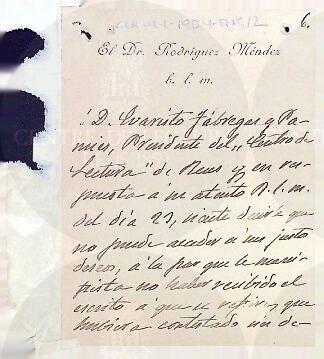 6.
El Dr. Rodríguez Méndez
b. l. m.
á D. Evaristo Fábregas y Pa-
mies, Presidente del "Centro de
Lectura" de Reus y en res-
puesta á su atento B. l. m.
del día 23, siente decirle que
no puede acceder á sus justos
deseos, á la par que le mani-
fiesta no haber recibido el
escrito á que se refiere, que
hubiera contestado sin de-